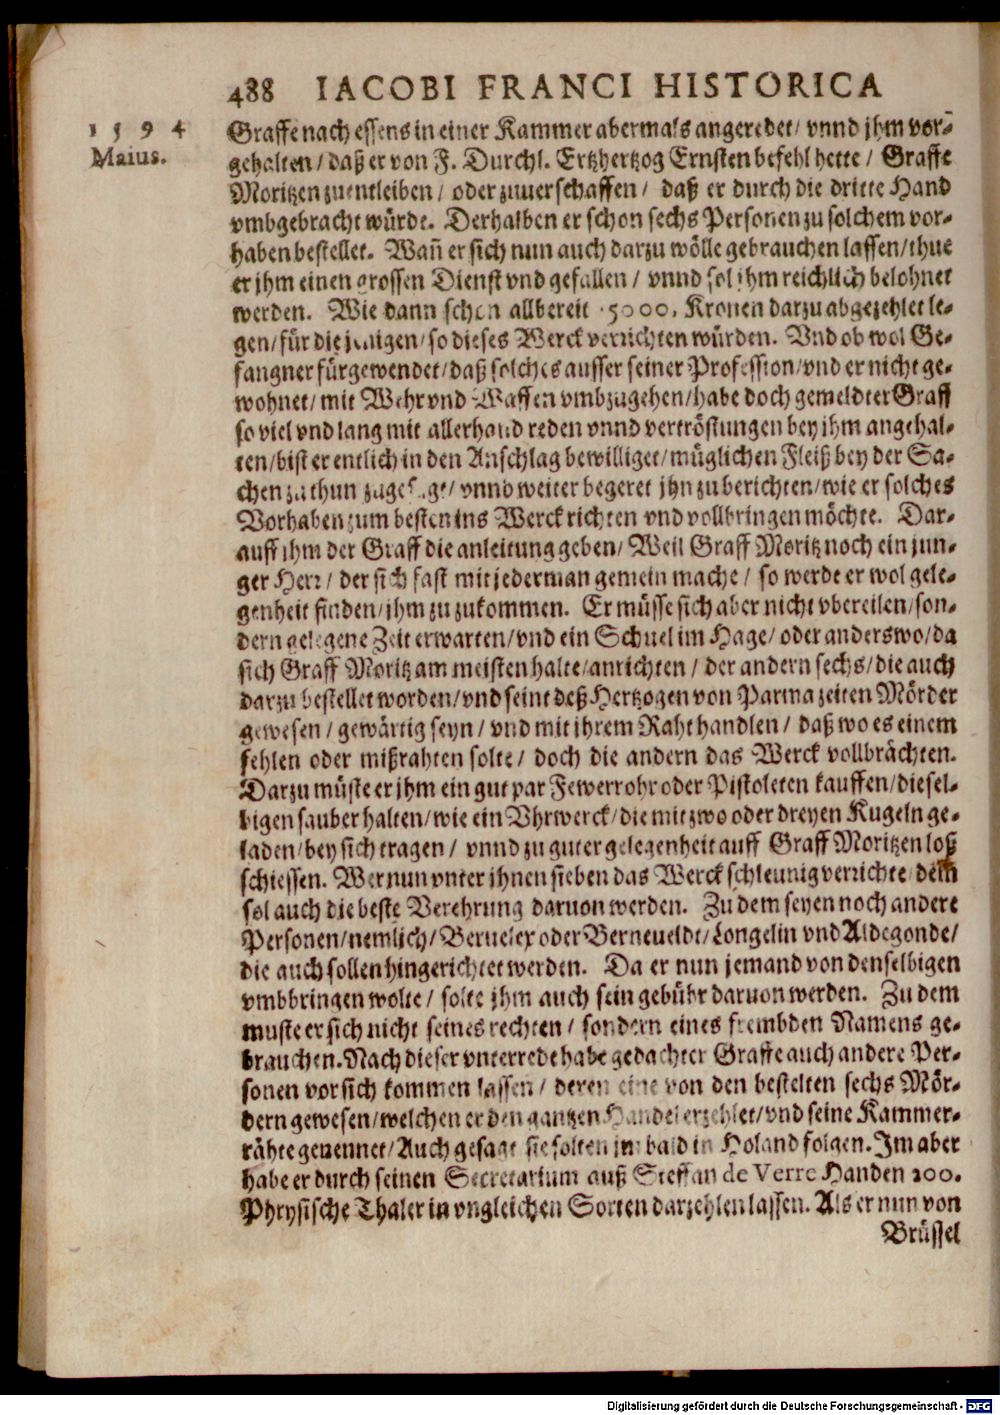 488 IACOBI FRANCI HISTORICA
1594
Maius.
Graffe nach essens in einer Kammer abermals angeredet/ vnnd jhm vor-
gehalten/ daß er von F. Durchl. Ertzhertzog Ernsten befehl hette/ Graffe
Moritzen zuentleiben/ oder zuuerschaffen/ daß er durch die dritte Hand
vmbgebracht würde. Derhalben er schon sechs Personen zu solchem vor-
haben bestellet. Wañ er sich nun auch darzu wölle gebrauchen lassen/ thue
er jhm einen grossen Dienst vnd gefallen/ vnnd sol jhm reichlich belohnet
werden. Wie dann schon allbereit 5000. Kronen darzu abgezehlet le-
gen/ für die jenigen/ so dieses Werck verrichten würden. Vnd ob wol Ge-
fangner fürgewendet/ daß solches ausser seiner Profession/ vnd er nicht ge-
wohnet/ mit Wehr vnd Waffen vmbzugehen/ habe doch gemeldter Graff
so viel vnd lang mit allerhand reden vnnd vertröstungen bey jhm angehal-
ten/ bist er entlich in den Anschlag bewilliget/ müglichen Fleiß bey der Sa-
chen zu thun zugesagt/ vnnd weiter begeret jhn zu berichten/ wie er solches
Vorhaben zum besten ins Werck richten vnd vollbringen möchte. Dar-
auff ihm der Graff die anleitung geben/ Weil Graff Moritz noch ein jun-
ger Herr/ der sich fast mit jederman gemein mache/ so werde er wol gele-
genheit finden/ jhm zu zukommen. Er müsse sich aber nicht vbereilen/ son-
dern gelegene Zeit erwarten/ vnd ein Schuel im Hage/ oder anderswo/ da
sich Graff Moritz am meisten halte/ anrichten/ der andern sechs/ die auch
darzu bestellet worden/ vnd seint deß Hertzogen von Parma zeiten Mörder
gewesen/ gewärtig seyn/ vnd mit jhrem Raht handlen/ daß wo es einem
fehlen oder mißrahten solte/ doch die andern das Werck vollbrächten.
Darzu müste er jhm ein gut par Fewerrohr oder Pistoleten kauffen/ diesel-
bigen sauber halten/ wie ein Vhrwerck/ die mit zwo oder dreyen Kugeln ge-
laden/ bey sich tragen/ vnnd zu guter gelegenheit auff Graff Moritzen loß
schiessen. Wer nun vnter jhnen sieben das Werck schleunig verrichte/ dem
sol auch die beste Verehrung daruon werden. Zu dem seyen noch andere
Personen/ nemlich/ Beruelex oder Berneueldt/ Longelin vnd Aldegonde/
die auch sollen hingerichtet werden. Da er nun jemand von denselbigen
vmbbringen wolte/ solte jhm auch sein gebühr daruon werden. Zu dem
muste er sich nicht seines rechten/ sondern eines frembden Namens ge-
brauchen. Nach dieser vnterrede habe gedachter Graffe auch andere Per-
sonen vor sich kommen lassen/ deren eine von den bestelten sechs Mör-
dern gewesen/ welchen er den gantzen Handel erzehlet/ vnd seine Kammer-
rähte genennet/ Auch gesagt sie solten jm bald in Holand folgen. Im aber
habe er durch seinen Secretarium auß Steffan de Verre Handen 200.
Phrysische Thaler in vngleichen Sorten darzehlen lassen. Als er nun von
Brüssel
Digitalisierung gefördert durch die Deutsche Forschungsgemeinschaft - DFG